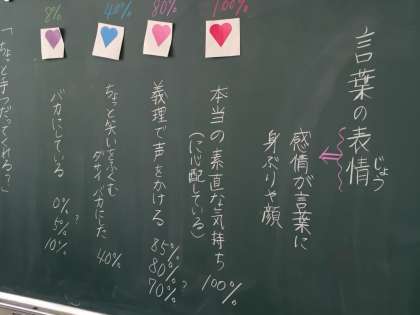 言葉の表情
じょう
感情が言葉に
身ぶりや顔
100%
本当の素直な気持ち
(に心配している)
100%
80%
義理で声をかける
85%
80%
70%?
40%
ちょっと笑いをふくむ
バカにした
40%
8%
バカにしている
0%
5%?
10%
「ちょっと手つだってくれる?」